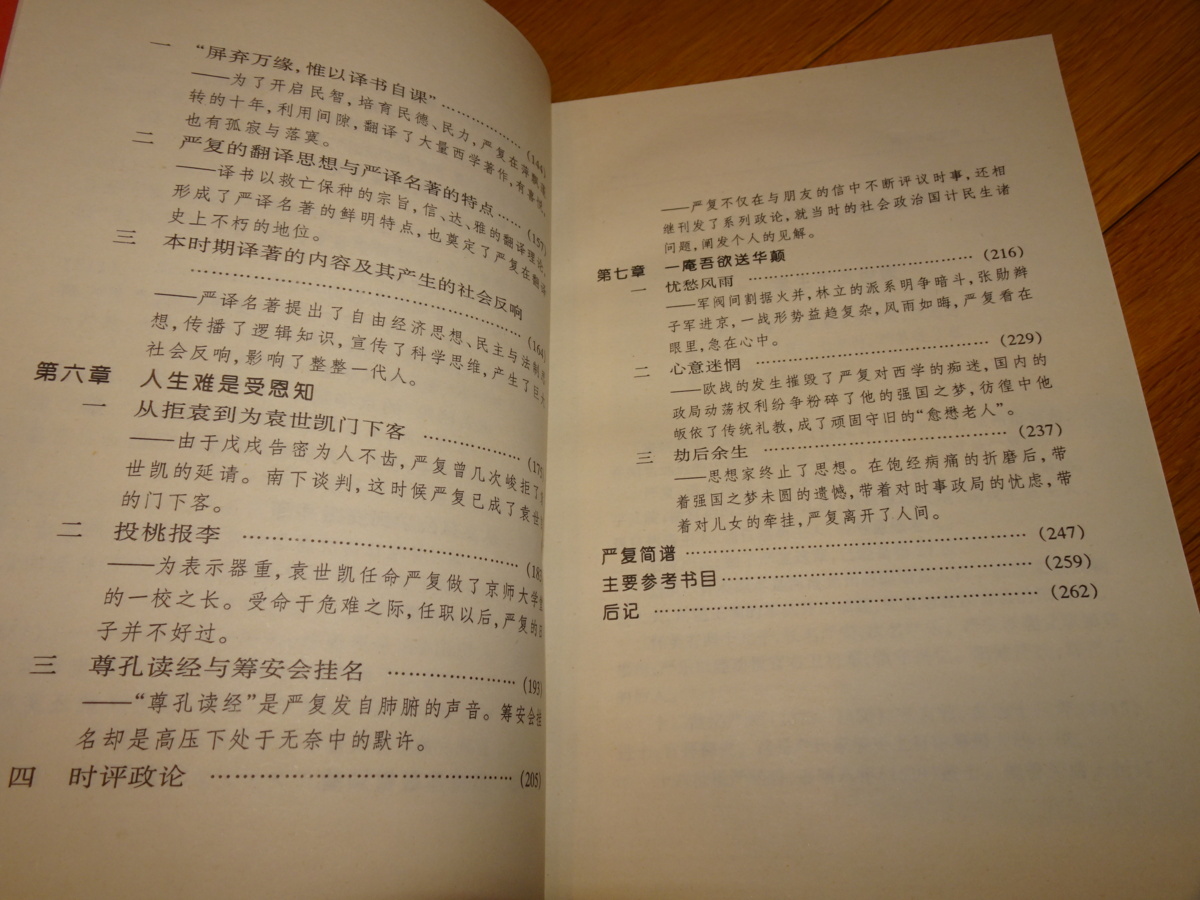 一 “屏弃万缘，惟以译书自课” ……………… (144)
——为了开启民智，培育民德、民力，严复在
转的十年，利用间隙，翻译了大量西学著作，有
也有孤寂与落寞。
二 严复的翻译思想与严译名著的特点 ……… (157)
——译书以救亡保种的宗旨，信、达、雅的翻译理论，
形成了严译名著的鲜明特点，也奠定了严复在翻译
史上不朽的地位。
三 本时期译著的内容及其产生的社会反响
……………………………………… (164)
——严译名著提出了自由经济思想、民主与法制
想，传播了逻辑知识，宣传了科学思维，产生了
社会反响，影响了整整一代人。
第六章 人生难是受恩知
一 从拒袁到为袁世凯门下客 ……………
——由于戊戌告密为人不齿，严复曾几次峻拒了
世凯的延请。南下谈判，这时候严复已成了袁世
的门下客。
二 投桃报李 ……………………………
——为表示器重，袁世凯任命严复做了京师大学
的一校之长。受命于危难之际，任职以后，严复的
子并不好过。
三 尊孔读经与筹安会挂名 ……………… (193)
——“尊孔读经”是严复发自肺腑的声音。筹安会挂
名却是高压下处于无奈中的默许。
四 时评政论 ……………………………… (205)
——严复不仅在与朋友的信中不断评议时事，还相
继刊发了系列政论，就当时的社会政治国计民生诸
问题，阐发个人的见解。
第七章 一庵吾欲送华颠
一 忧愁风雨 ……………………………… (216)
——军阀间割据火并，林立的派系明争暗斗，张勋辫
子军进京，一战形势益趋复杂，风雨如晦，严复看在
眼里，急在心中。
二 心意迷惘 ……………………………… (229)
——欧战的发生摧毁了严复对西学的痴迷，国内的
政局动荡权利纷争粉碎了他的强国之梦，彷徨中他
皈依了传统礼教，成了顽固守旧的“愈懋老人”。
三 劫后余生 ……………………………… (237)
——思想家终止了思想。在饱经病痛的折磨后，带
着强国之梦未圆的遗憾，带着对时事政局的忧虑，带
着对儿女的牵挂，严复离开了人间。
严复简谱 …………………………………… (247)
主要参考书目 ……………………………… (259)
后记 ………………………………………… (262)